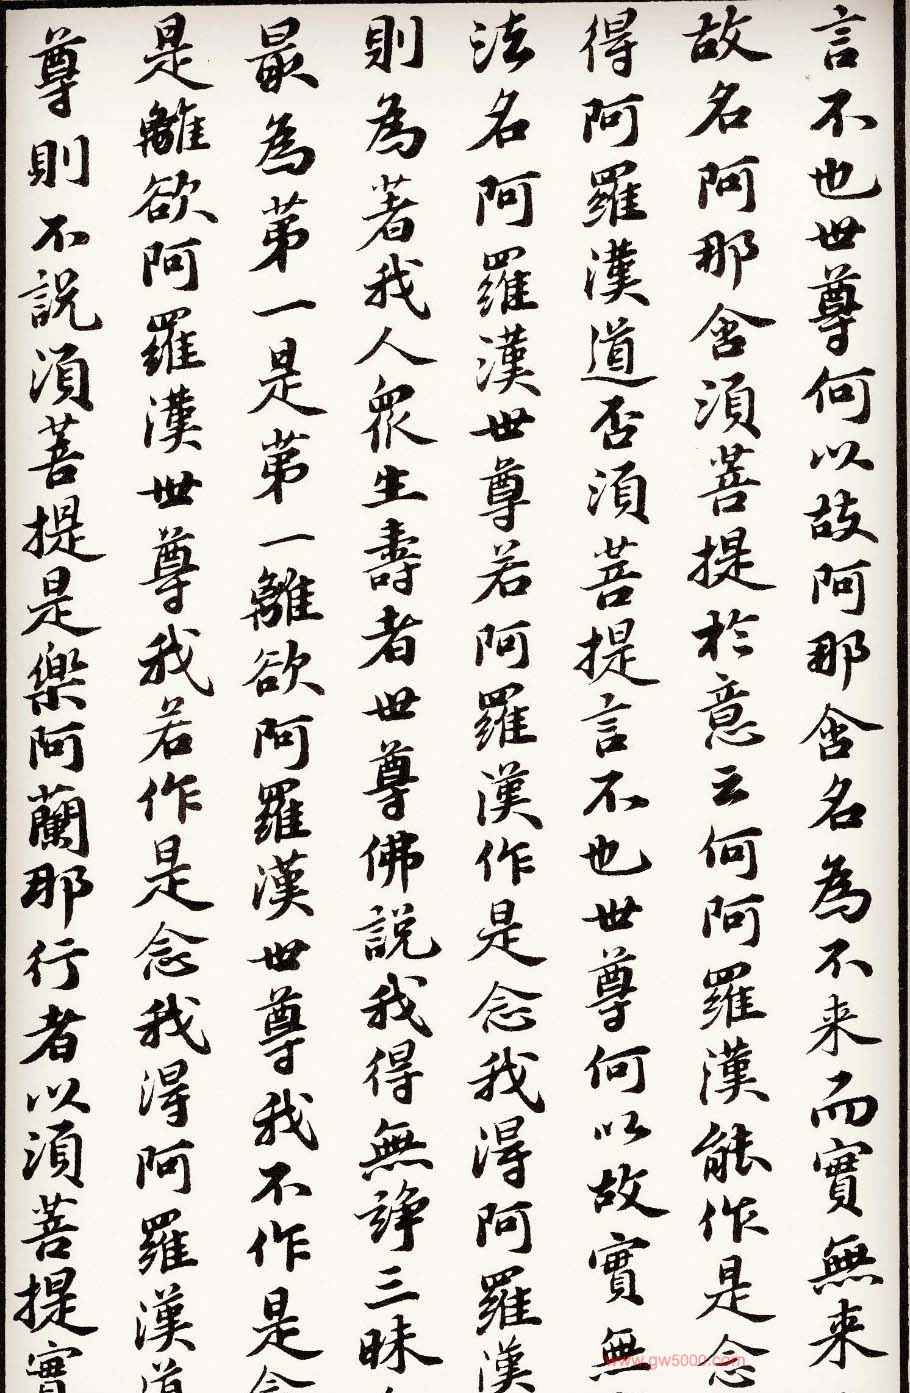 言不也世尊何以故阿那含名為不来而實無来
故名阿那含須菩提於意云何阿羅漢能作是念
得阿羅漢道否須菩提言不也世尊何以故實無
法名阿羅漢世尊若阿羅漢作是念我得阿羅漢
則為著我人衆生壽者世尊佛説我得無諍三昧
最為苐一是苐一離欲阿羅漢世尊我不作是念
是離欲阿羅漢世尊我若作是念我得阿羅漢道
尊則不説須菩提是樂阿蘭那行者以須菩提實
www.gw5000.com